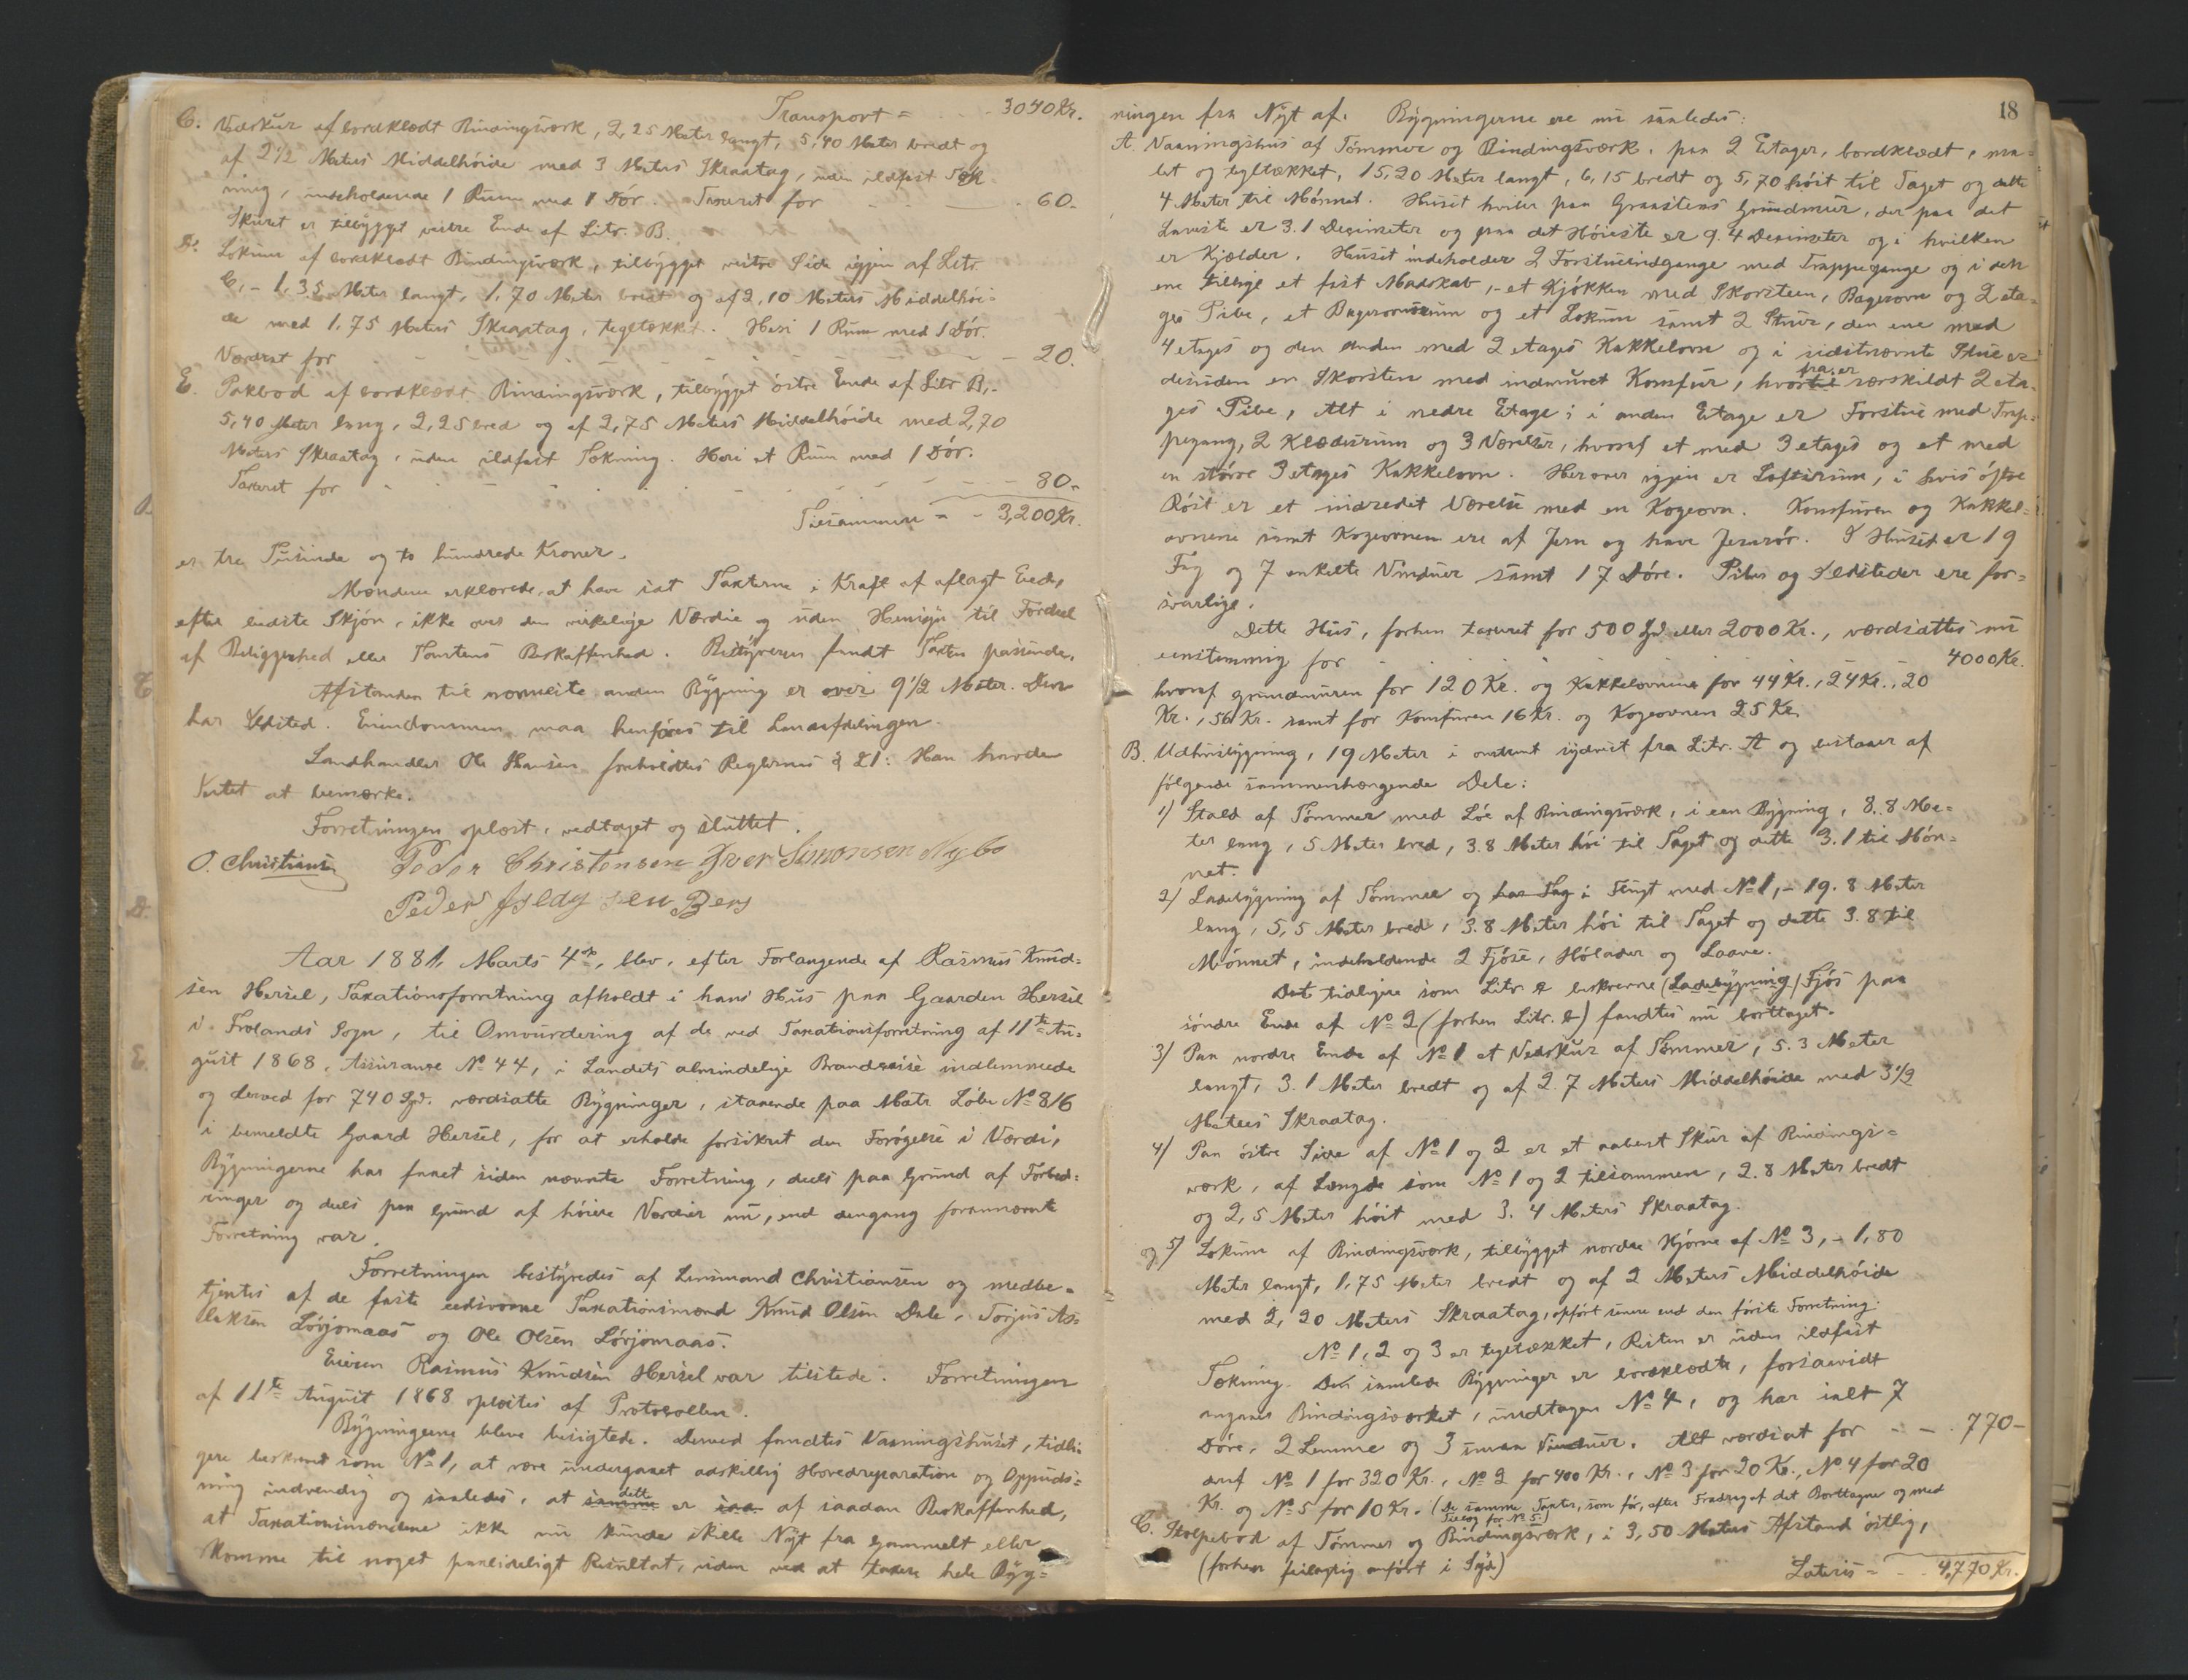 Transport = 3040 Kr.
C. Vedskur af bordklædt Bindingsværk, 2,25 Meter langt, 5,40 Meter bredt og
af 2 1/2 Meters Middelhöide med 3 Meters Skraatag, uden ildfast Tæk
ning, indeholdende 1 Rum med 1 Dör. Taxeret for 60.
Skuret er tilbygget vestre Ende af Litr. B.
D. Lokum af bordklædt Bindingsværk, tilbygget vestre Side igjen af Litr.
C, - 1,35 Meter langt, 1,70 Meter bredt og af 2,10 Meters Middelhöi-
de med 1,75 Meters Skraatag, tegltækket. Heri 1 Rum med 1 Dör.
Værdsat for 20.
E. Pakbod af bordklædt Bindingsværk, tilbygget östre Ende af Litr B,-
5,40 Meter lang, 2,25 bred og af 2,75 Meters Middelhöide med 2,70
Meters Skraatag, uden ildfast Tækning. Heri et Rum med 1 Dör.
Taxeret for 80.
Tilsammen = 3,200 Kr.
er tre Tusinde og to hundrede Kroner.
Mændene erklærede, at have sat Taxterne i Kraft af aflagt Eed,
efter bedste Skjön, ikke over den virkelige Værdie og uden Hensyn til Fordeel
af Beliggenhed eller Tomtens Beskaffenhed. Bestyreren fandt Taxten passende.
Afstanden til nærmeste anden Bygning er over 9 1/2 Meter. Den
har Ildsted. Eiendommen maa henföres til Landafdelingen.
Landhandler Ole Hansen foreholdtes Reglernes § 21: Han havde
Intet at bemærke.
Forretningen oplæst, vedtaget og sluttet.
O. Christiansen Peder Christensen Iver Simonsen Nybo
Peder Berg
Aar 1881, Marts 4de, blev, efter Forlangende af Rasmus Knud=
sen Hersel, Taxationsforretning afholdt i hans Hus paa Gaarden Hersel
i Frolands Sogn, til Omvurdering af de ved Taxationsforretning af 11te Au=
gust 1868, Assurance No 44, i Landets almindelige Brandkasse indlemmede
og derved for 740 Spd. værdsatte Bygninger, staaende paa Matr. Löbe No 81b
i bemeldte Gaard Hersel, for at erholde forsikret den Forögelse i Værdi,
Bygningerne har faaet siden nævnte Forretning, deels paa Grund af Forbed=
ringer og deels paa Grund af höiere Værdier nu, end dengang forannævnte
Forretning var.
Forretningen bestyredes af Lensmand Christiansen og medbe=
tjentes af de faste eedsvorne Taxationsmænd Knud Olsen Dale, Torjus As=
laksen Lövjomaas og Ole Olsen Lövjomaas.
Eieren Rasmus Knudsen Hersel var tilstede. Forretningen
af 11te August 1868 oplæstes af Protocollen.
Bygningerne bleve besigtede. Derved fandtes Vaaningshuset, tidli
gere beskrevet som No 1, at være undergaaet adskillig Hovedreparation og Oppuds=
ning indvendig og saaledes, at samme dette er saa af saadan Beskaffenhed,
at Taxationsmændene ikke nu kunde skille Nyt fra Gammelt eller
komme til noget paalideligt Resultat, uden ved at taxere hele Byg=
18
ningen fra Nyt af. Bygningerne ere nu saaledes:
A. Vaaningshus af Tömmer og Bindingsværk, paa 2 Etager, bordklædt, ma=
let og tegltækket, 15,20 Meter langt, 6,15 bredt og 5,70 höit til Taget og dette
4 Meter til Mönnet. Huset hviler paa Graastens Grundmur, der paa det
Laveste er 3.1 Desimeter og paa det Höieste er 9.4 Desimeter og i hvilken
er Kjælder. Huset indeholder 2 Forstueindgange med Trappegange og i den
ene tillige et fast Madskab,- et Kjökken med Skorsteen, Bagerovn og 2 eta=
ges Pibe, et Bagerovnsrum og et Lokum samt 2 Stuer, den ene med
4 etages og den anden med 2 etages Kakkelovn og i sidstnævnte Stue er
desuden en Skorsten med indmuret Komfur, hvortil fra er særskildt 2 eta=
ges Pibe, Alt i nedre Etage; i anden Etage er Forstue med Trap=
pegang, 2 Klæderum og 3 Værelser, hvoraf et med 3 etages og et med
en större 3 etages Kakkelovn. Herover igjen er Loftsrum, i hvis östre
Röst er et indredet Værelse med en Kogeovn. Komfuren og Kakkel=
ovnene samt Kogeovnen ere af Jern og have Jernrör. I Huset er 19
Fag og 7 enkelte Vinduer samt 17 Döre. Piber og Ildsteder ere for=
svarlige.
Dette Hus, forhen taxeret for 500 Spd. eller 2000 Kr., værdsattes nu
eenstemmig for 4000 Kr.
hvoraf grundmuren for 120 Kr. og Kakkelovnene for 44 Kr., 24 Kr., 20
Kr., 56 Kr. samt for Komfuren 16 Kr. og Kogeovnen 25 Kr.
B. Udhusbygning, 19 Meter i omtrent sydvest fra Litr. A og bestaaer af
fölgende sammenhængende Dele:
1) Stald af Tömmer med Löe af Bindingsværk, i een Bygning, 8.8 Me=
ter lang, 5 Meter bred, 3.8 Meter höi til Taget og dette 3.1 til Mön=
net.
2) Ladebygning af Tömmer og har Tag i Flugt med No 1,- 19.8 Meter
lang, 5,5 Meter bred, 3.8 Meter höi til Taget og dette 3.8 til
Mönnet, indeholdende 2 Fjöse, Hölader og Laave.
Det tidligere som Litr. beskrevne (Ladebygning) Fjös paa
söndre Ende af No 2 (forhen Litr. b) fandtes nu borttaget.
3) Paa nordre Ende af No 1 et Vedskur af Tömmer, 5.3 Meter
langt, 3.1 Meter bredt og af 2.7 Meters Middelhöide med 3 1/2
Meters Skraatag.
4) Paa östre Side af No 1 og 2 er et aabent Skur af Bindings=
værk, af Længde som No 1 og 2 tilsammen, 2.8 Meter bredt
og 2,5 Meter höit med 3.4 Meters Skraatag.
og 5) Lokum af Bindingsværk, tilbygget nordre Hjörne af No 3, - 1,80
Meter langt, 1,75 Meter bredt og af 2 Meters Middelhöide
med 2,20 Meters Skraatag, opfört senere end den förste Forretning.
No 1, 2 og 3 er tegltækket, Resten er uden ildfast
Tækning. Den samlede Bygninger er bordklædte, forsaavidt
angaaer Bindingsværket, undtagen No 4, og har ialt 7
Döre, 2 Lemme og 3 smaa Vinduer. Alt værdsat for 770-
deraf No 1 for 320 Kr., No 2 for 400 Kr., No 3 for 20 Kr., No 4 for 20
Kr. og No 5 for 10 Kr. (De samme Taxter, som för, efter Fradrag af det Borttagne og med
Tillæg for No 5.)
C. Stolpebod af Tömmer og Bindingsværk, i 3,50 Meters Afstand östlig,
(forhen feilagtig anfört i Syd)
Lateris = 4,770 Kr.